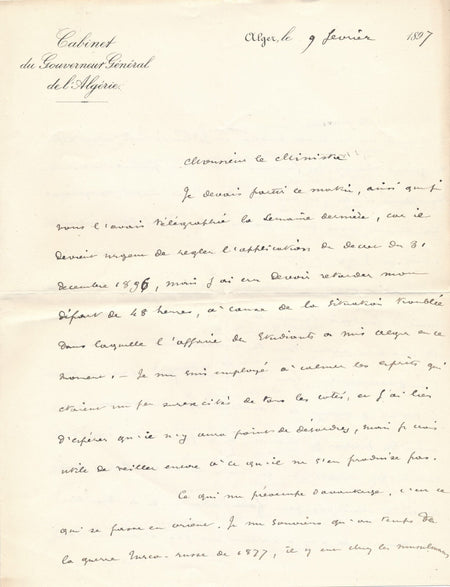 Cabinet
du Gouverneur Général
de l'Algérie.
Alger, le 9 février 1897
Monsieur le Ministre
Je devais partir ce matin, ainsi que je
vous l'avais télégraphié la semaine dernière, car il
devient urgent de régler l'application du décret du 31
décembre 1896, mais j'ai cru devoir retarder mon
départ de 48 heures, à cause de la situation troublée
dans laquelle l'affaire des Etudiants a mis Alger en ce
moment. — Je me suis employé à calmer les esprits qui
étaient un peu surexcités de tous les cotés, et j'ai lieu
d'espérer qu'il n'y aura point de désordres, mais je crois
utile de veiller encore à ce qu'il ne s'en produise pas.
Ce qui me préoccupe davantage, c'est ce
qui se passe en orient. Je me souviens qu'au temps de
la guerre turco-russe de 1877, il y eut chez les musulmans